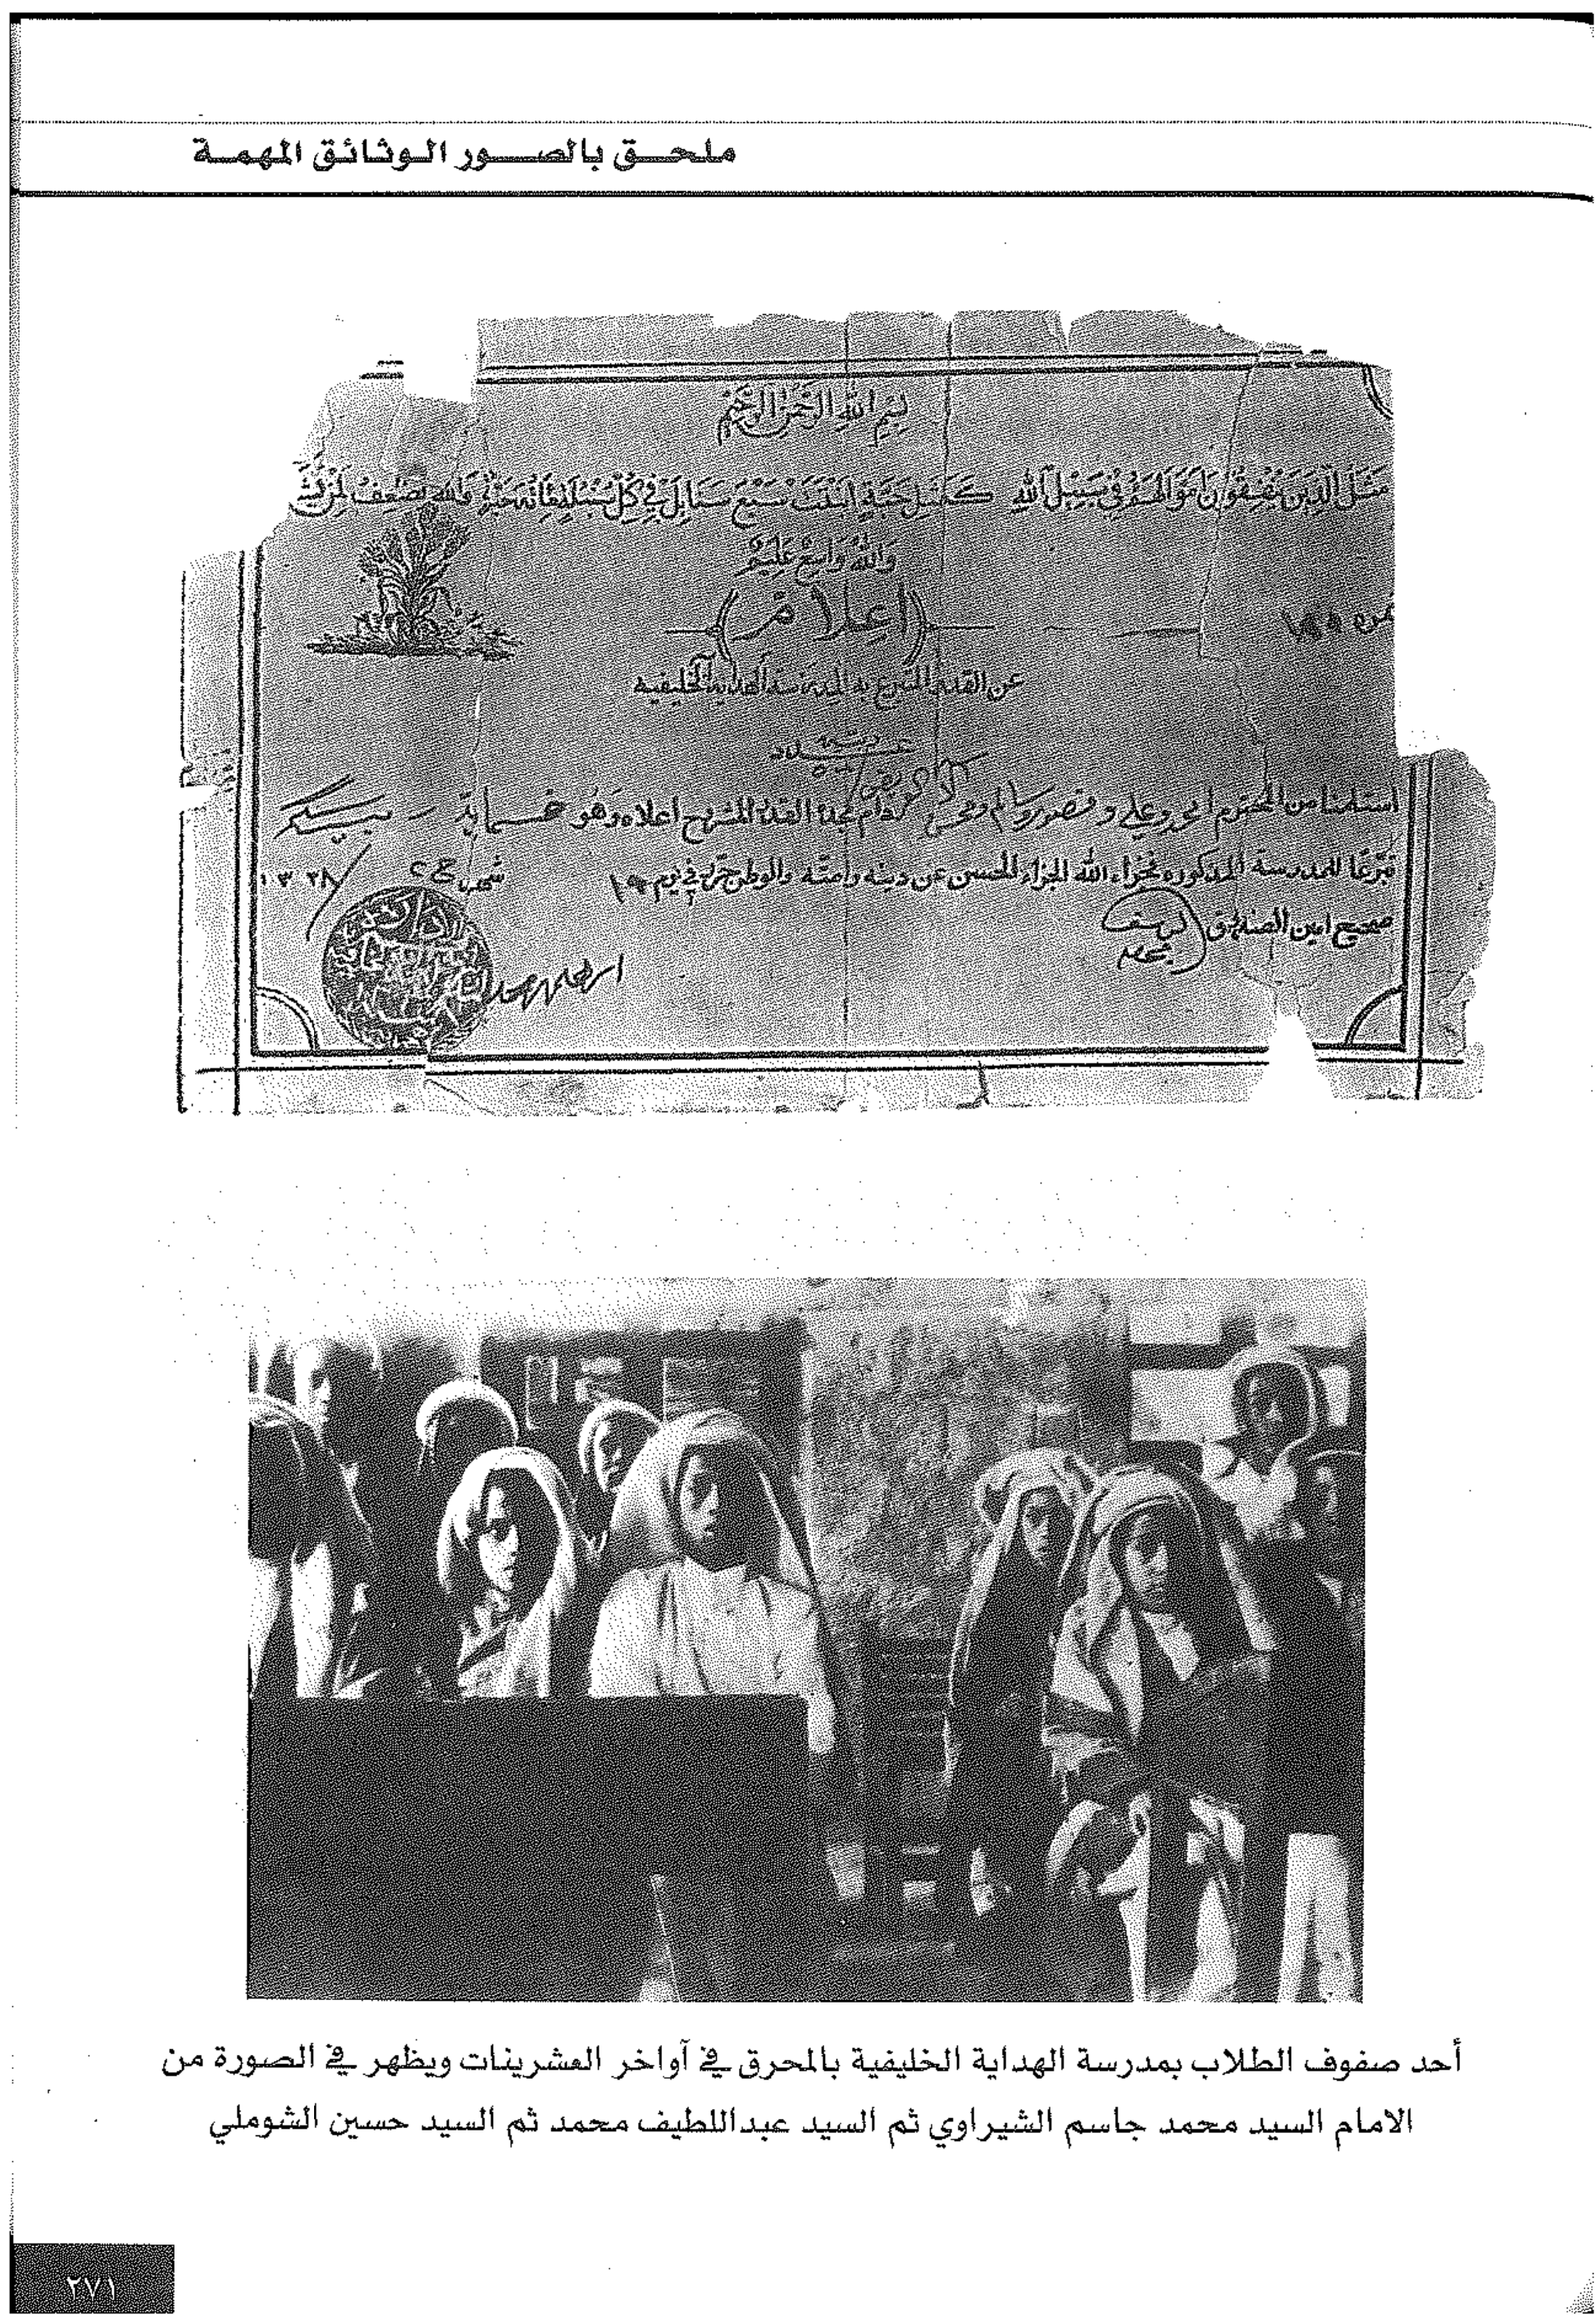 ملحق بالصور الوثائق المهمة
بسم الله الرحمن الرحيم
مثل الذين ينفقون اموالهم في سبيل الله كمثل حبة انبتت سبع سنابل في كل سنبلة مائة حبة والله يضعف لمن يشاء
والله واسع عليم
(اعلام)
نمره
عن القدر المتبرع به لمدرسة الهداية الخليفيه
استلمنا من المحترم القدر المشروح اعلاه وهو خمسماية
تبرعًا للمدرسة المذكوره فجزاه الله الجزاء المحسن عن دينه وامته والوطن حرر في يوم ١٩ ١٣٣٨
صحيح امين الصندوق
أحد صفوف الطلاب بمدرسة الهداية الخليفية بالمحرق في آواخر العشرينات ويظهر في الصورة من
الامام السيد محمد جاسم الشيراوي ثم السيد عبداللطيف محمد ثم السيد حسين الشوملي
٢٧١